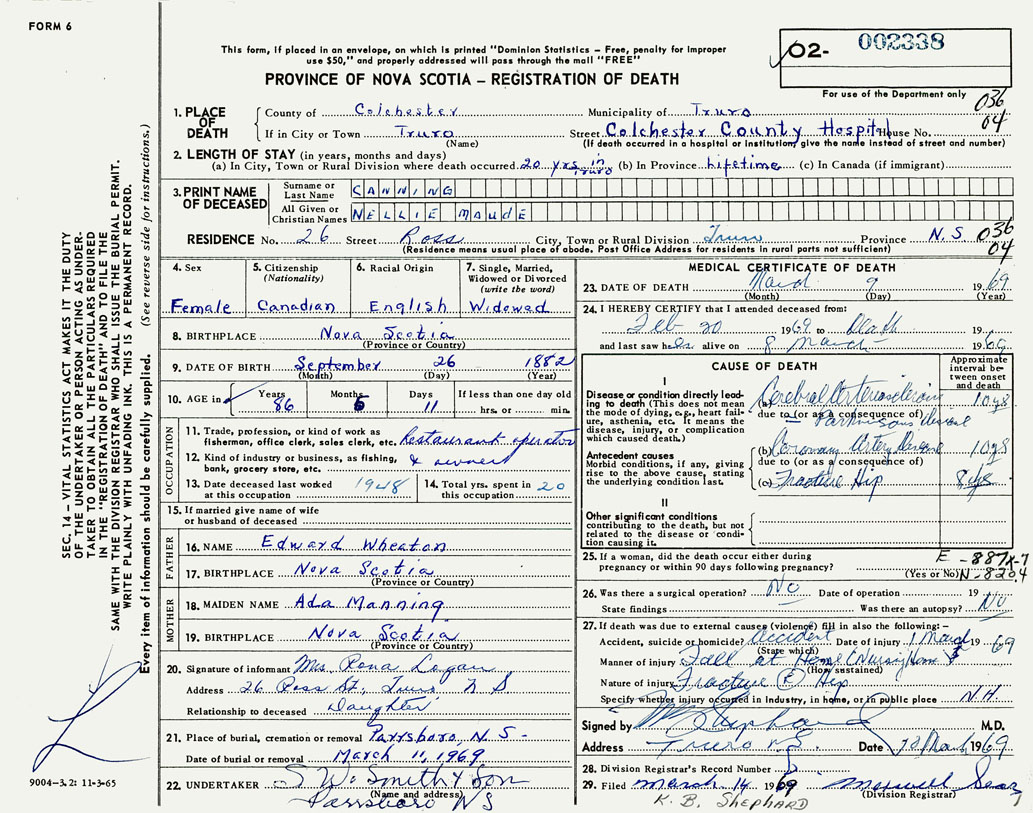 FORM 6
This form, if placed in an envelope, on which is printed "Dominion Statistics – Free, penalty for improper
use $50," and properly addressed will pass through the mail "FREE"
PROVINCE OF NOVA SCOTIA – REGISTRATION OF DEATH
02- 002338
For use of the Department only
036
04
1. PLACE OF DEATH
County of Colchester Municipality of Truro
If in City or Town Truro Street Colchester County Hospital House No.
(Name) (If death occurred in a hospital or institution, give the name instead of street and number)
2. LENGTH OF STAY (in years, months and days)
(a) In City, Town or Rural Division where death occurred 20 yrs. in Truro (b) In Province Lifetime (c) In Canada (if immigrant)
3. PRINT NAME OF DECEASED
Surname or Last Name CANNING
All Given or Christian Names NELLIE MAUDE
RESIDENCE No. 26 Street Ross City, Town or Rural Division Truro Province N.S
(Residence means usual place of abode. Post Office Address for residents in rural parts not sufficient)
036
04
4. Sex
Female
5. Citizenship (Nationality)
Canadian
6. Racial Origin
English
7. Single, Married, Widowed or Divorced (write the word)
Widowed
8. BIRTHPLACE Nova Scotia
(Province or Country)
9. DATE OF BIRTH September 26 1882
(Month) (Day) (Year)
10. AGE in Years 86 Months 5 Days 11 If less than one day old
hrs. or min.
OCCUPATION
11. Trade, profession, or kind of work as
fisherman, office clerk, sales clerk, etc. Restaurant operator
12. Kind of industry or business, as fishing,
bank, grocery store, etc. & owner
13. Date deceased last worked
at this occupation 1948
14. Total yrs. spent in
this occupation 20
15. If married give name of wife
or husband of deceased
FATHER
16. NAME Edward Wheaton
17. BIRTHPLACE Nova Scotia
(Province or Country)
MOTHER
18. MAIDEN NAME Ada Manning
19. BIRTHPLACE Nova Scotia
(Province or Country)
20. Signature of informant Mrs. Rona Logan
Address 26 Ross St., Truro N S
Relationship to deceased Daughter
21. Place of burial, cremation or removal Parrsboro, N.S-
Date of burial or removal March 11, 1969
22. UNDERTAKER S W. Smith & Son
(Name and address)
Parrsboro NS
MEDICAL CERTIFICATE OF DEATH
23. DATE OF DEATH March 9 1969
(Month) (Day) (Year)
24. I HEREBY CERTIFY that I attended deceased from:
Feb 20 1969 to Death 19
and last saw her alive on 8 March 1969
CAUSE OF DEATH
Approximate interval between onset and death
I
Disease or condition directly leading
to death (This does not mean
the mode of dying, e.g., heart failure,
asthenia, etc. It means the
disease, injury, or complication
which caused death.)
Cerebral Arteriosclerosis
due to (or as a consequence of)
Parkinsons disease
Antecedent causes
Morbid conditions, if any, giving
rise to the above cause, stating
the underlying condition last.
(b) Coronary Artery Disease
due to (or as a consequence of)
(c) Fracture Hip
II
Other significant conditions
contributing to the death, but not
related to the disease or condition
causing it.
25. If a woman, did the death occur either during
pregnancy or within 90 days following pregnancy?
(Yes or No)
E-887X-7
N-820.4
26. Was there a surgical operation? No Date of operation 19
State findings Was there an autopsy? No
27. If death was due to external causes (violence) fill in also the following:–
Accident, suicide or homicide? Accident Date of injury 1 March 1969
(State which)
Manner of injury Fall at Home (Nursing Home)
(How sustained)
Nature of injury Fracture Hip
Specify whether injury occurred in industry, in home, or in public place N.H.
Signed by M.D.
Address Truro N.S. Date 10 March 1969
28. Division Registrar's Record Number
29. Filed March 14 1969
(Division Registrar)
K. B. SHEPHARD
SEC. 14 – VITAL STATISTICS ACT MAKES IT THE DUTY
OF THE UNDERTAKER OR PERSON ACTING AS UNDER-
TAKER TO OBTAIN ALL THE PARTICULARS REQUIRED
IN THE "REGISTRATION OF DEATH" AND TO FILE THE
SAME WITH THE DIVISION REGISTRAR WHO SHALL ISSUE THE BURIAL PERMIT.
WRITE PLAINLY WITH UNFADING INK. THIS IS A PERMANENT RECORD.
Every item of information should be carefully supplied. (See reverse side for instructions.)
9004-3.2: 11-3-65